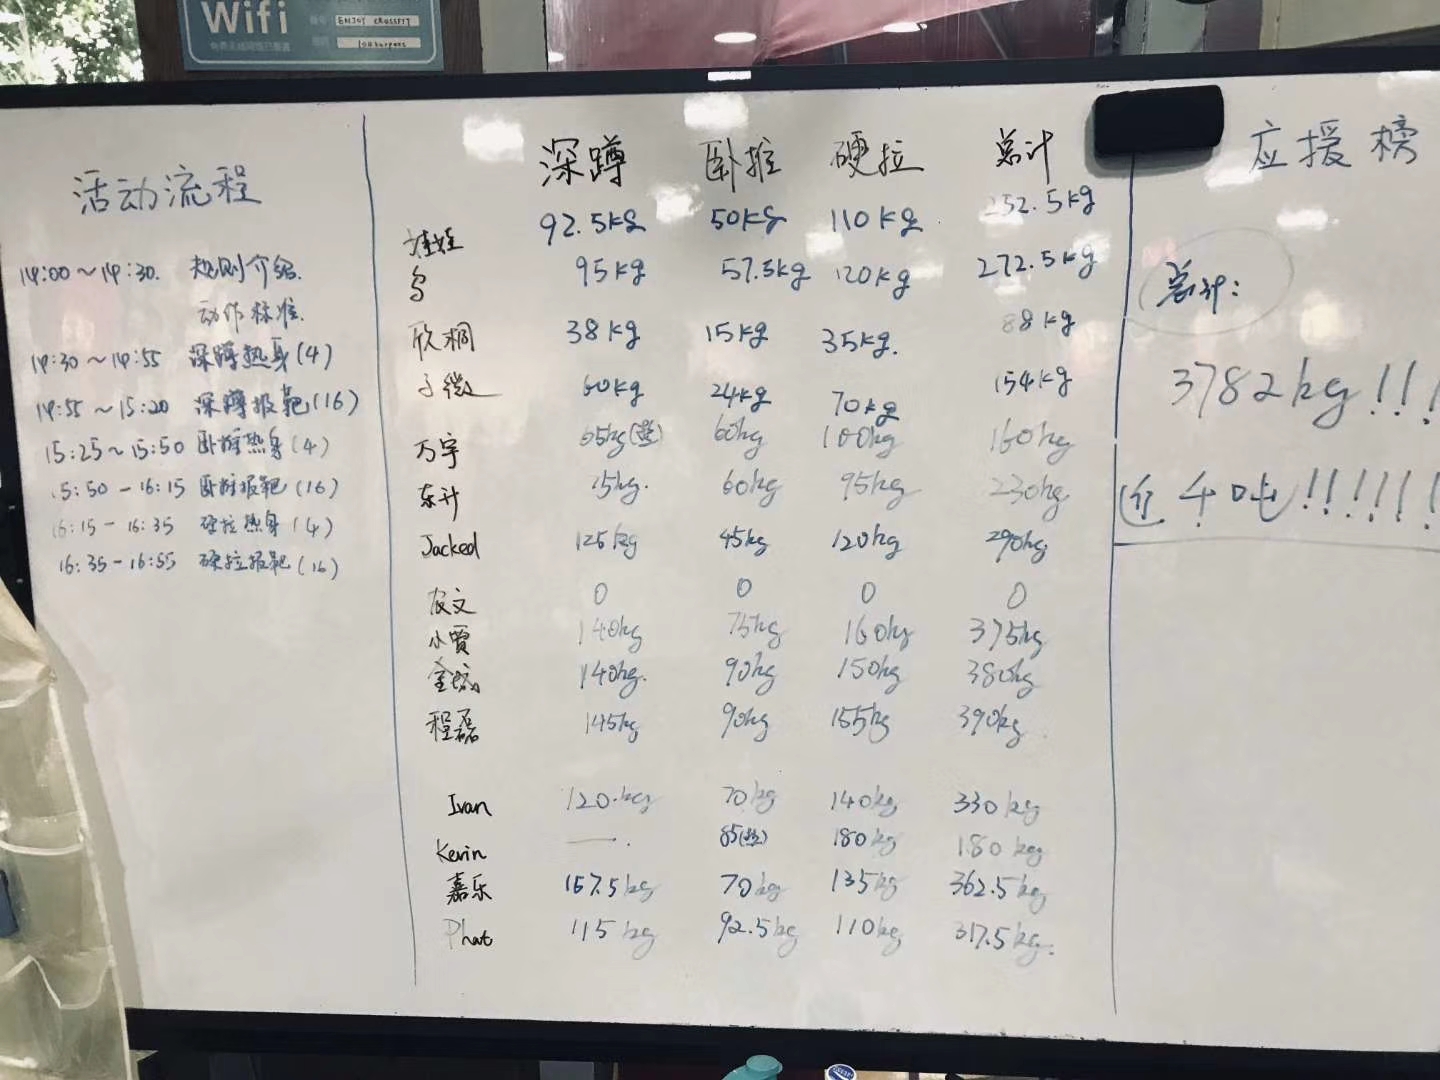 Wifi
ENJOY CROSSFIT
100burpees
活动流程
14:00～14:30. 规则介绍.
动作标准.
14:30～14:55 深蹲热身(4)
14:55～15:20 深蹲报靶(16)
15:25～15:50 卧推热身(4)
15:50－16:15 卧推报靶(16)
16:15－16:35 硬拉热身(4)
16:35－16:55 硬拉报靶(16)
深蹲 卧推 硬拉 总计
娃娃 92.5kg 50kg 110kg 252.5kg
鸟 95kg 57.5kg 120kg 272.5kg
欣桐 38kg 15kg 35kg. 88kg
子微 60kg 24kg 70kg 154kg
万宇 65kg 60kg 100kg 160kg
东升 75kg. 60kg 95kg 230kg
Jacked 125kg 45kg 120kg 290kg
友文 0 0 0 0
小贾 140kg 75kg 160kg 375kg
金城 140kg. 90kg 150kg 380kg
程磊 145kg 90kg 155kg 390kg
Ivan 120.kg 70kg 140kg 330kg
Kevin —. 85 180kg 180kg
嘉乐 157.5kg 70kg 135kg 362.5kg
Phat 115kg 92.5kg 110kg 317.5kg.
应援榜
总计:
3782kg!!!
近4吨!!!!!!